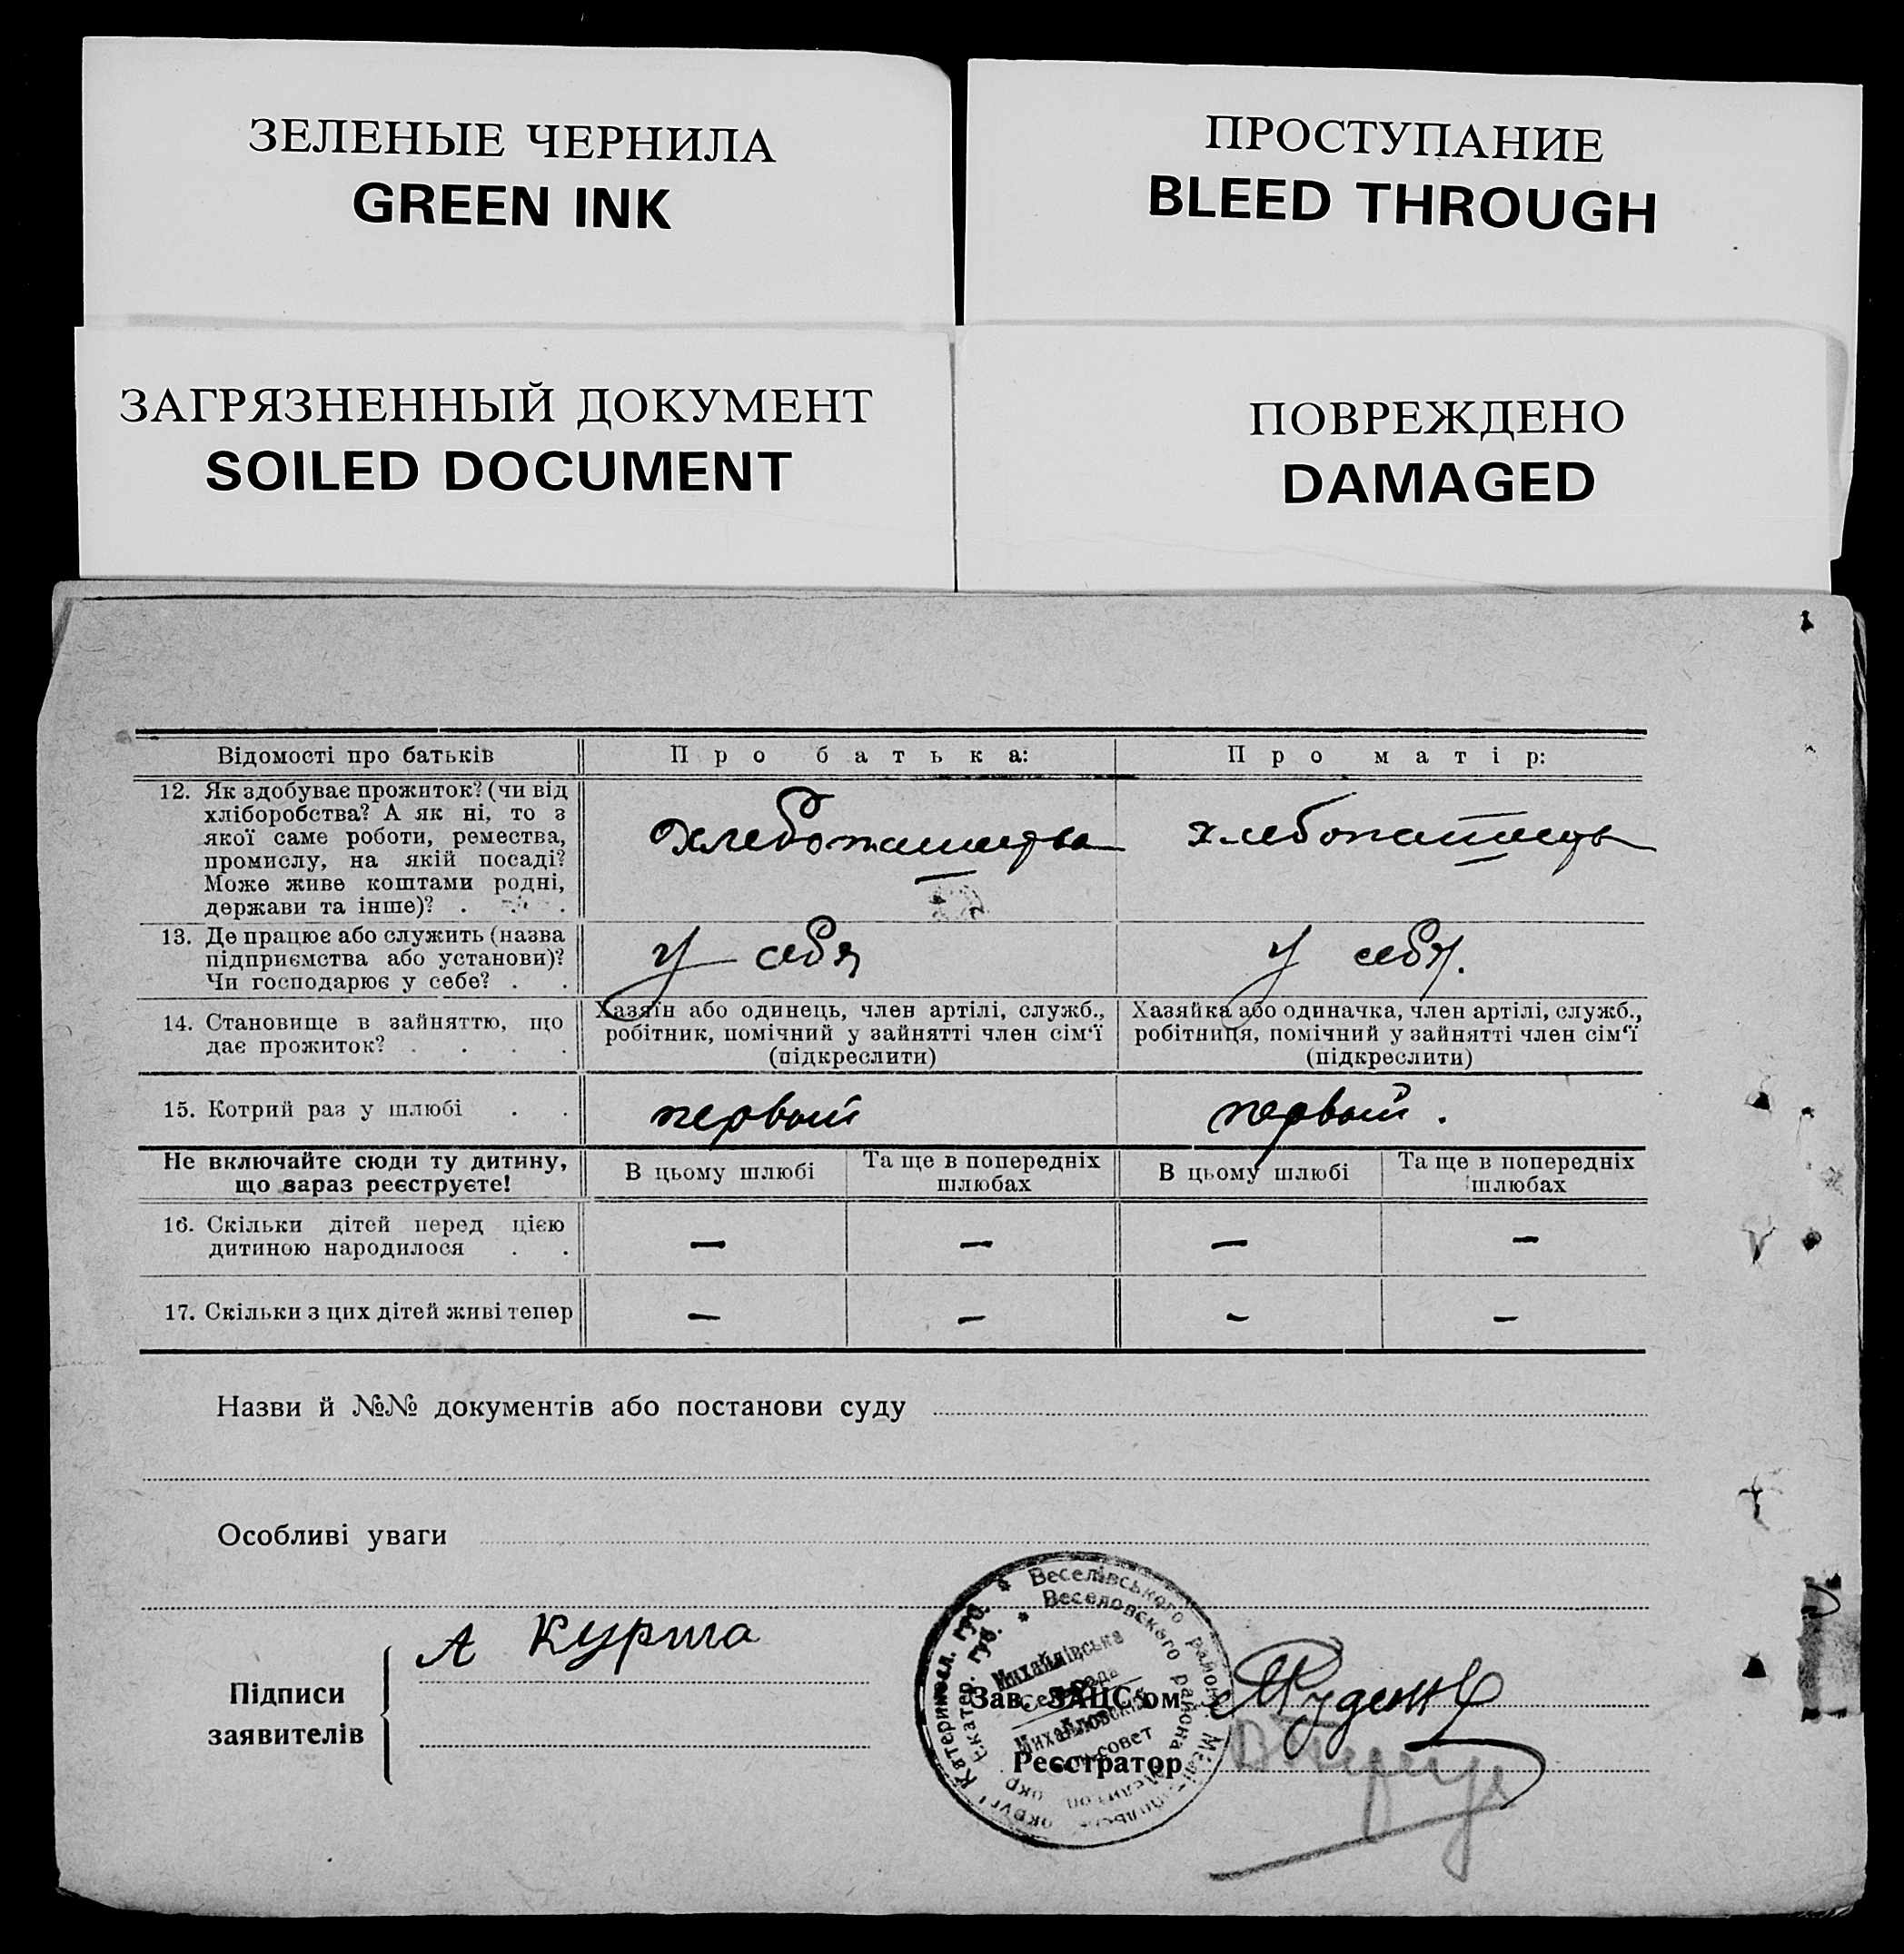 ЗЕЛЕНЫЕ ЧЕРНИЛА
GREEN INK
ПРОСТУПАНИЕ
BLEED THROUGH
ЗАГРЯЗНЕННЫЙ ДОКУМЕНТ
SOILED DOCUMENT
ПОВРЕЖДЕНО
DAMAGED
Відомості про батьків
Про батька:
Про матір:
12. Як здобуває прожиток? (чи від
хліборобства? А як ні, то з
якої саме роботи, ремества,
промислу, на якій посаді?
Може живе коштами родні,
держави та інше)? . . .
хлебопашество
хлебопашест
13. Де працює або служить (назва
підприємства або установи)?
Чи господарює у себе? . .
у себя
у себя.
14. Становище в зайняттю, що
дає прожиток? . . . .
Хазяїн або одинець, член артілі, служб.,
робітник, помічний у зайнятті член сім'ї
(підкреслити)
Хазяйка або одиначка, член артілі, служб.,
робітниця, помічний у зайнятті член сім'ї
(підкреслити)
15. Котрий раз у шлюбі . .
первый
первый.
Не включайте сюди ту дитину,
що зараз реєструєте!
В цьому шлюбі
Та ще в попередніх
шлюбах
В цьому шлюбі
Та ще в попередніх
шлюбах
16. Скільки дітей перед цією
дитиною народилося . .
— — — —
17. Скільки з цих дітей живі тепер
— — - —
Назви й №№ документів або постанови суду
Особливі уваги
Підписи
заявителів
А Курта
Веселівського району
Веселовского района
Катериносл. губ. *
Екатер. губ. *
Михайлівська
Сельрада
Михайловский
совет
Зав. ЗАЦС'ом
Реєстратор